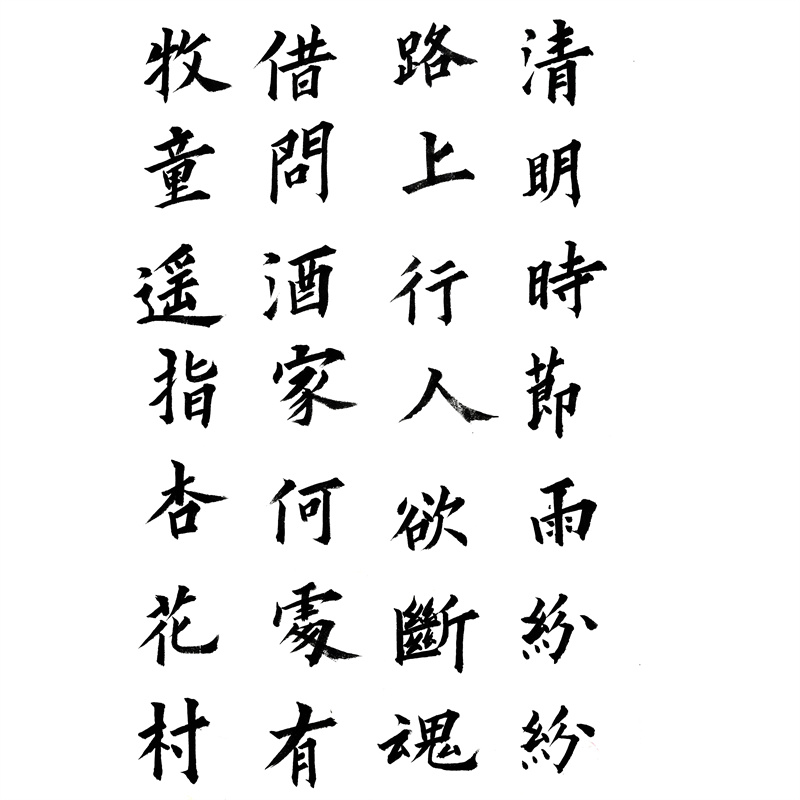 清明時節雨紛紛
路上行人欲斷魂
借問酒家何處有
牧童遥指杏花村